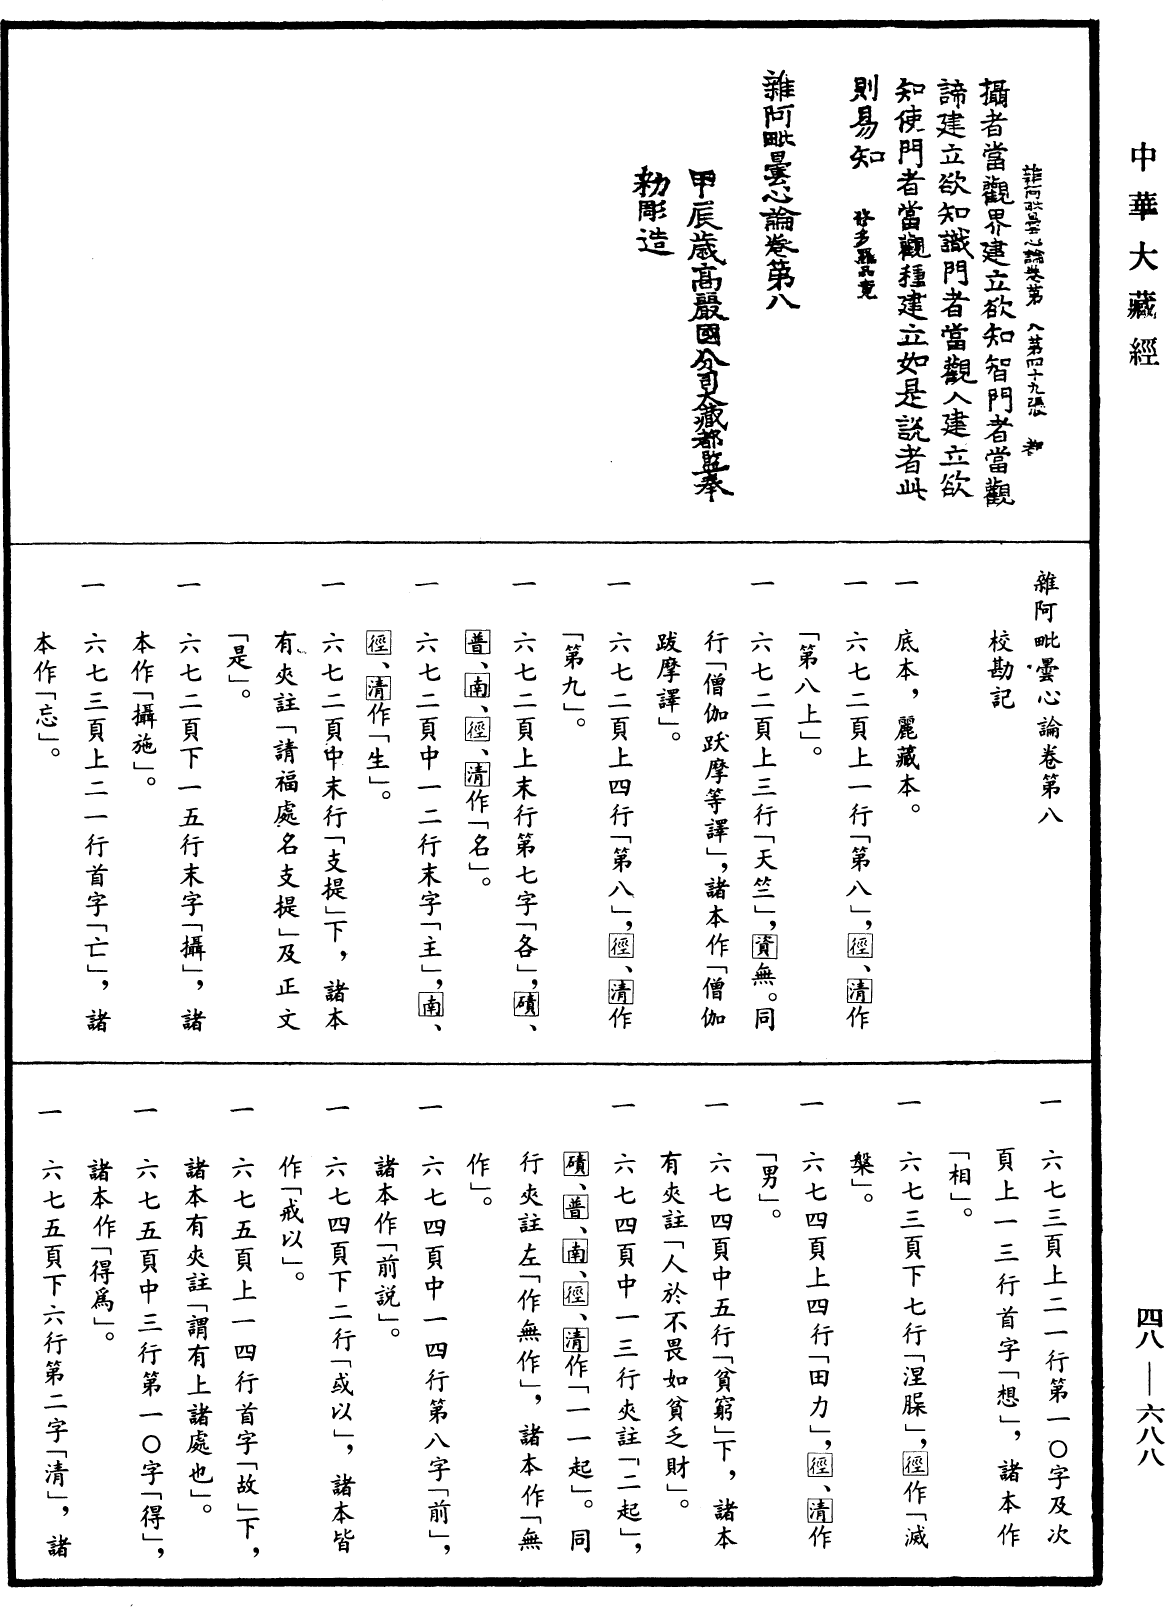 中華大藏經
雜阿毗曇心論卷第八 第四十九張 都
攝者當觀界建立欲知智門者當觀
諦建立欲知識門者當觀入建立欲
知使門者當觀種建立如是說者此
則易知 修多羅品竟
雜阿毗曇心論卷第八
甲辰歲高麗國分司大藏都監奉
勅彫造
雜阿毗曇心論卷第八
校勘記
一 底本，麗藏本。
一 六七二頁上一行「第八」，徑、清作
「第八上」。
一 六七二頁上三行「天竺」，資無。同
行「僧伽跋摩等譯」，諸本作「僧伽
跋摩譯」。
一 六七二頁上四行「第八」，徑、清作
「第九」。
一 六七二頁上末行第七字「各」，磧、
普、南、徑、清作「名」。
一 六七二頁中一二行末字「主」，南、
徑、清作「生」。
一 六七二頁中末行「支提」下，諸本
有夾註「請福處名支提」及正文
「是」。
一 六七二頁下一五行末字「攝」，諸
本作「攝施」。
一 六七三頁上二一行首字「亡」，諸
本作「忘」。
一 六七三頁上二一行第一〇字及次
頁上一三行首字「想」，諸本作
「相」。
一 六七三頁下七行「涅槃」，徑作「滅
槃」。
一 六七四頁上四行「田力」，徑、清作
「男」。
一 六七四頁中五行「貧窮」下，諸本
有夾註「人於不畏如貧乏財」。
一 六七四頁中一三行夾註「二起」，
磧、普、南、徑、清作「一一起」。同
行夾註左「作無作」，諸本作「無
作」。
一 六七四頁中一四行第八字「前」，
諸本作「前說」。
一 六七四頁下二行「或以」，諸本皆
作「戒以」。
一 六七五頁上一四行首字「故」下，
諸本有夾註「謂有上諸處也」。
一 六七五頁中三行第一〇字「得」，
諸本作「得爲」。
一 六七五頁下六行第二字「清」，諸
四八—六八八